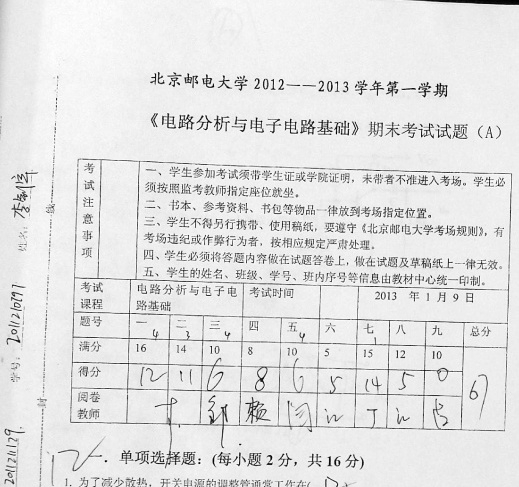 北京邮电大学2012——2013学年第一学期
《电路分析与电子电路基础》期末考试试题（A）
考试注意事项
一、学生参加考试须带学生证或学院证明，未带者不准进入考场。学生必
须按照监考教师指定座位就坐。
二、书本、参考资料、书包等物品一律放到考场指定位置。
三、学生不得另行携带、使用稿纸，要遵守《北京邮电大学考场规则》，有
考场违纪或作弊行为者，按相应规定严肃处理。
四、学生必须将答题内容做在试题答卷上，做在试题及草稿纸上一律无效。
五、学生的姓名、班级、学号、班内序号等信息由教材中心统一印制。
考试课程 电路分析与电子电路基础 考试时间 2013 年 1 月 9 日
题号 一 二 三 四 五 六 七 八 九 总分
4 3 4 4 1
满分 16 14 10 8 10 5 15 12 10
得分 12 11 6 8 6 5 14 5 0 67
阅卷教师
12
一. 单项选择题：(每小题 2 分，共 16 分)
1. 为了减少散热，开关电源的调整管通常工作在(
姓名：
学号：
线
封